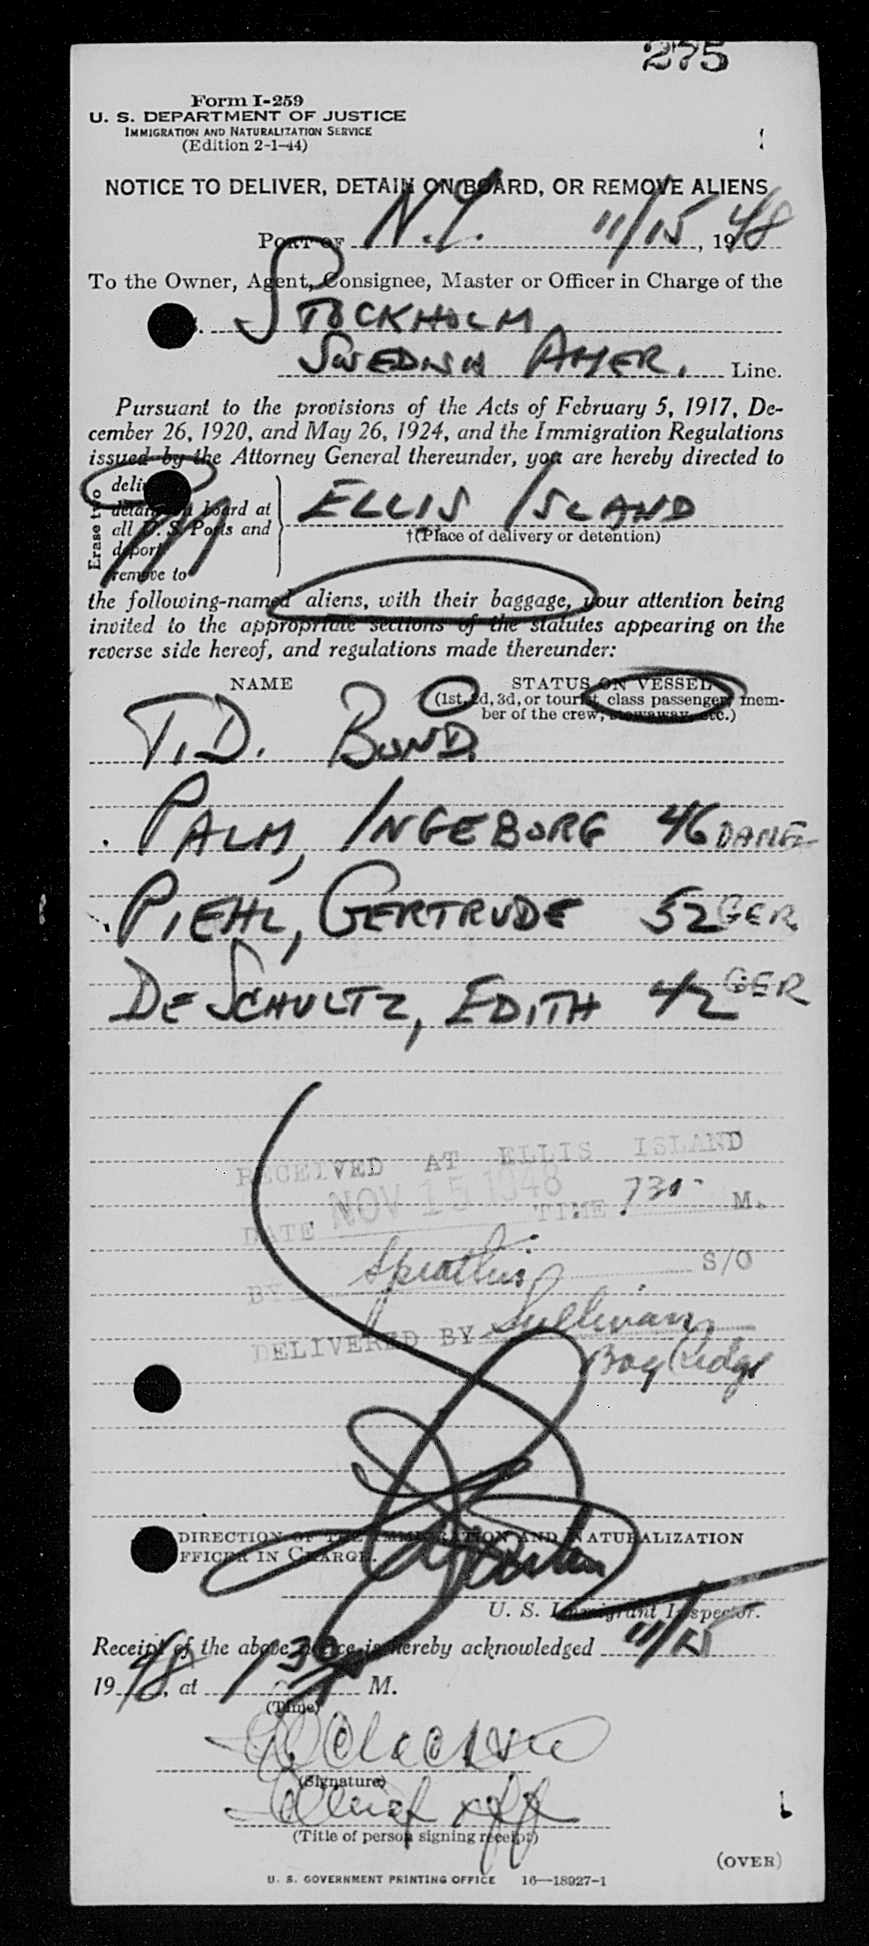 275
Form I-259
U. S. DEPARTMENT OF JUSTICE
IMMIGRATION AND NATURALIZATION SERVICE
(Edition 2-1-44)
NOTICE TO DELIVER, DETAIN ON BOARD, OR REMOVE ALIENS
PORT OF N.Y. 11/15, 1948
To the Owner, Agent, Consignee, Master or Officer in Charge of the
STOCKHOLM
SWEDISH AMER. Line.
Pursuant to the provisions of the Acts of February 5, 1917, De-
cember 26, 1920, and May 26, 1924, and the Immigration Regulations
issued by the Attorney General thereunder, you are hereby directed to
Erase two
deli
detain on board at
all U. S. Ports and
deport
remove to
ELLIS ISLAND
†(Place of delivery or detention)
the following-named aliens, with their baggage, your attention being
invited to the appropriate sections of the statutes appearing on the
reverse side hereof, and regulations made thereunder:
NAME STATUS ON VESSEL
(1st, 2d, 3d, or tourist class passenger, mem-
ber of the crew, stowaway, etc.)
T.D. BOND.
PALM, INGEBORG 46 DANE
PIEHL, GERTRUDE 52 GER
DE SCHULTZ, EDITH 42 GER
RECEIVED AT ELLIS ISLAND
DATE NOV 15 1948 TIME 730 M.
BY S/O
DELIVERED BY Sullivan
Bay Ridge
DIRECTION OF THE IMMIGRATION AND NATURALIZATION
FFICER IN CHARGE.
U. S. Immigrant Inspector.
Receipt of the above notice is hereby acknowledged 11/15
1948, at 130 M.
(Time)
(Signature)
Chief off
(Title of person signing receipt)
(OVER)
U. S. GOVERNMENT PRINTING OFFICE 16—18927-1